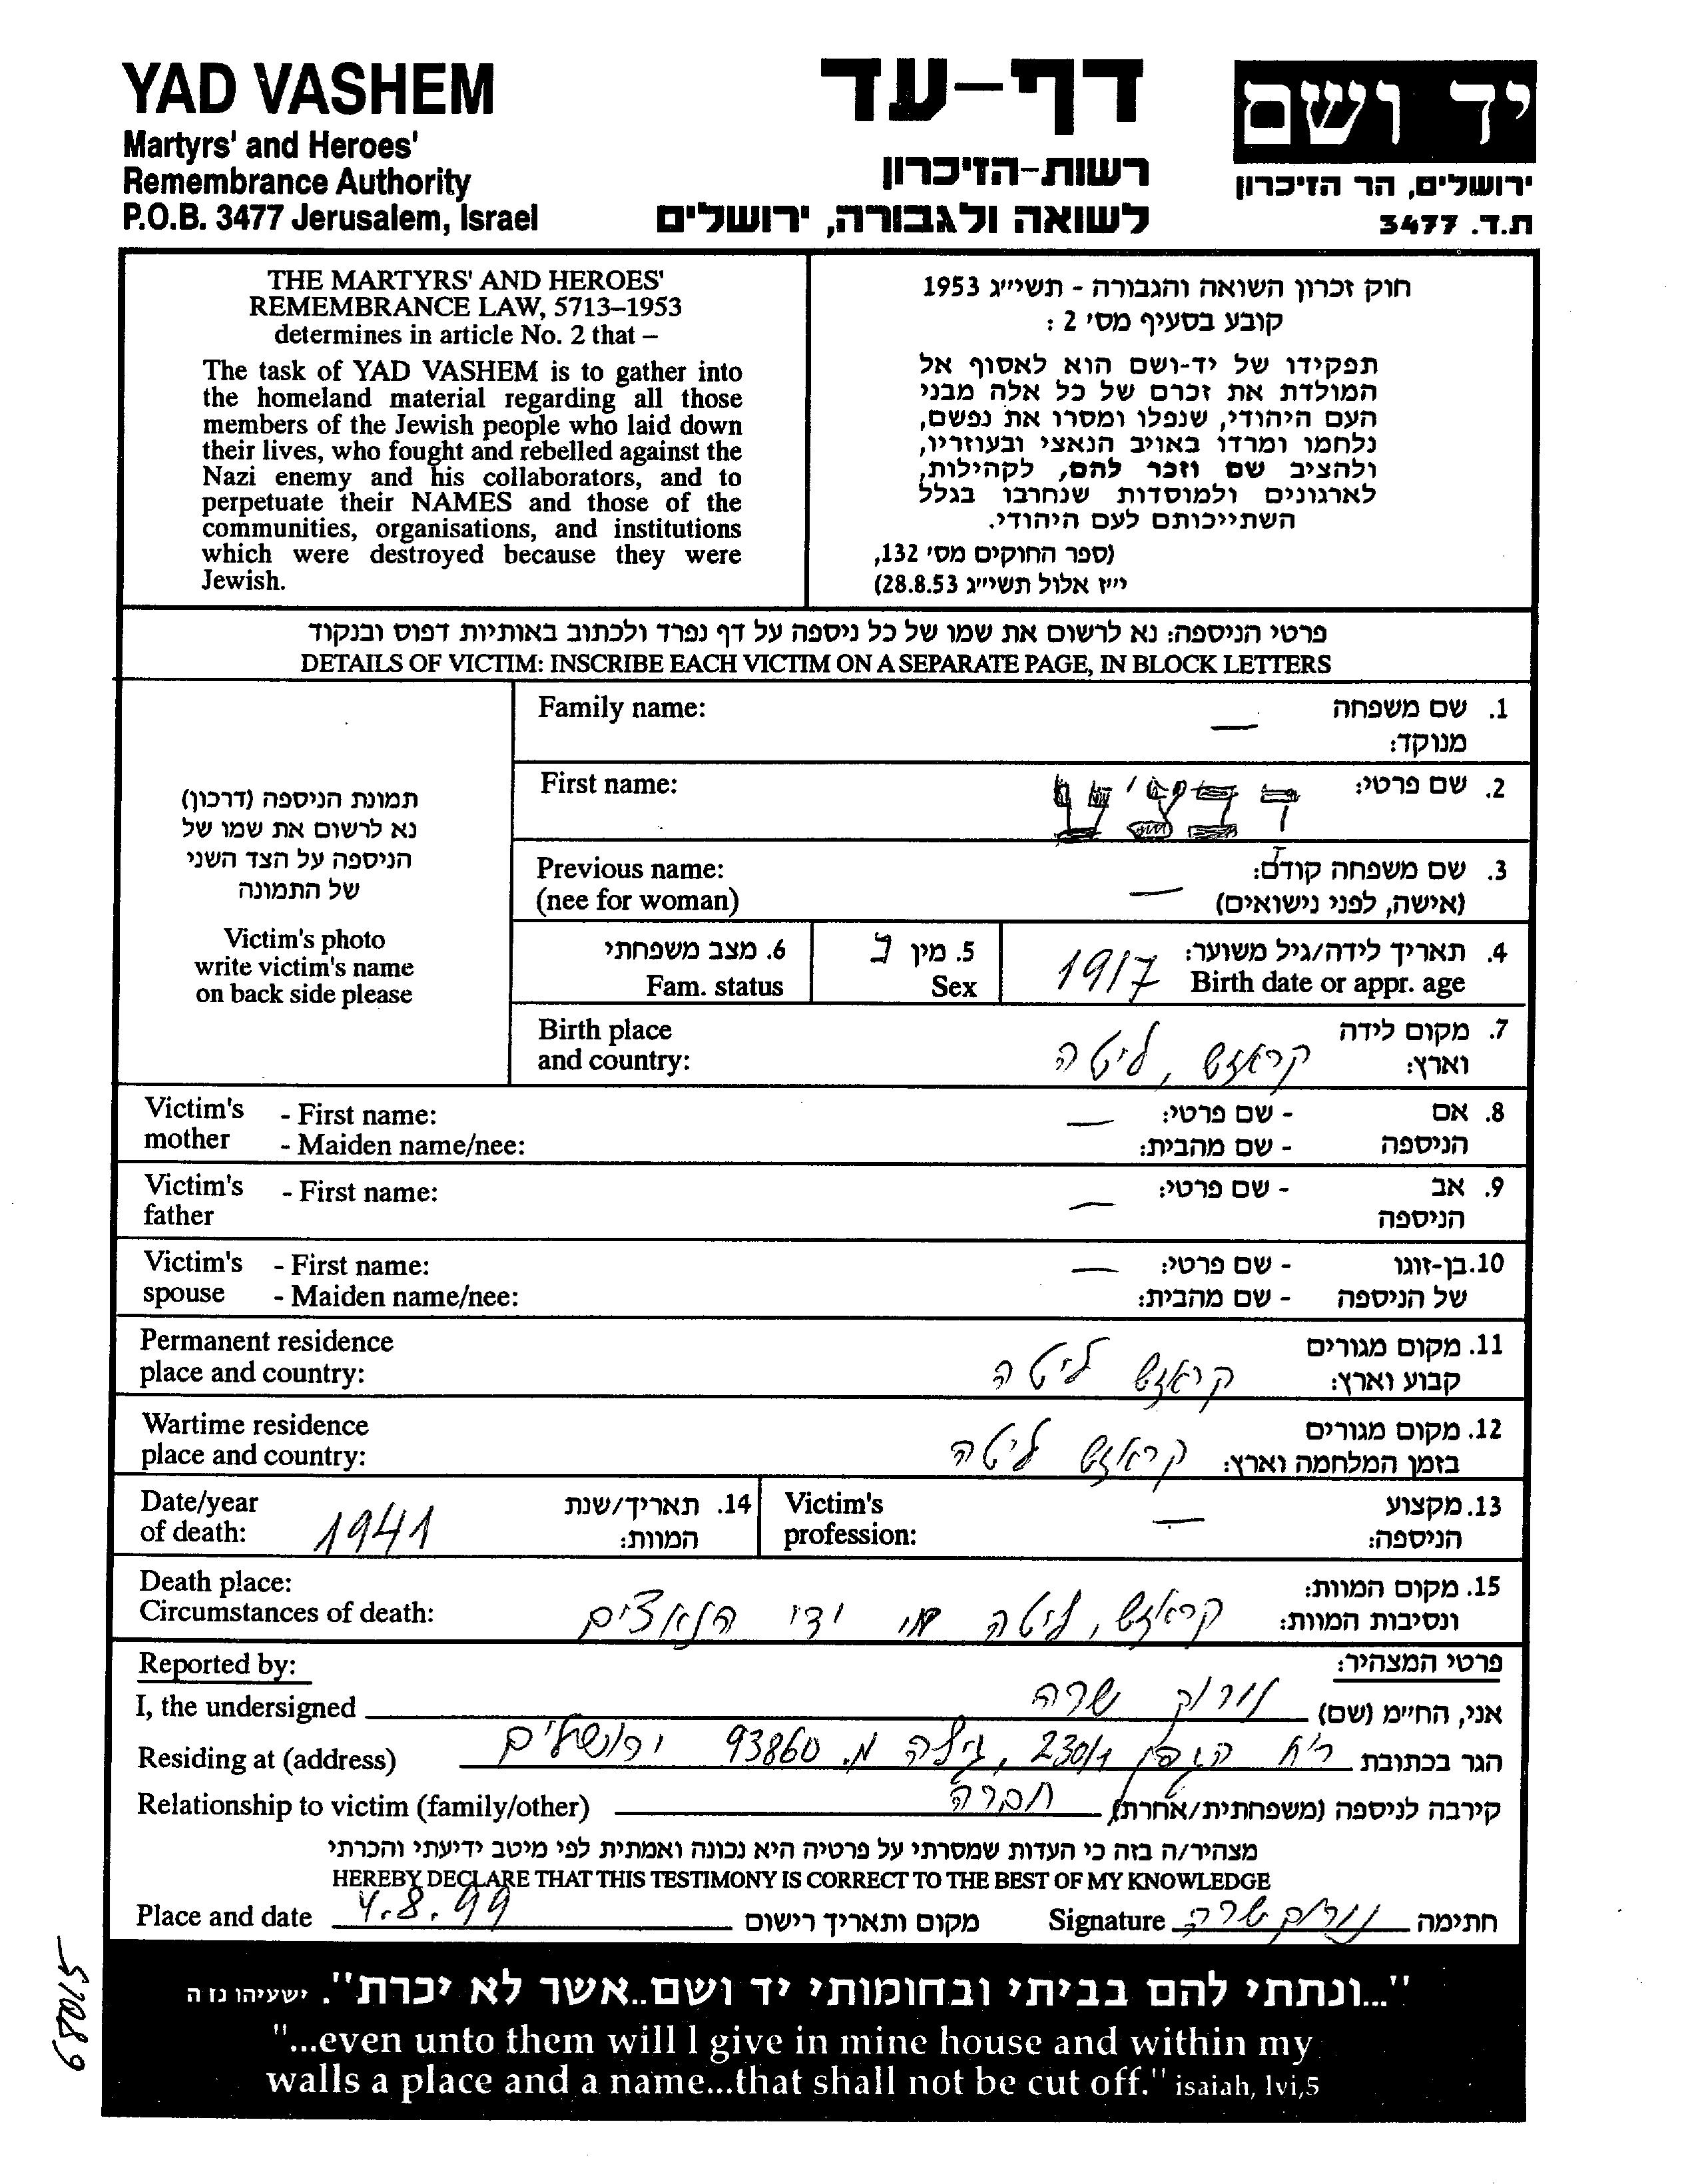 YAD VASHEM
Martyrs' and Heroes'
Remembrance Authority
P.O.B. 3477 Jerusalem, Israel
דף-עד
רשות-הזיכרון
לשואה ולגבורה, ירושלים
יד ושם
ירושלים, הר הזיכרון
ת.ד. 3477
THE MARTYRS' AND HEROES'
REMEMBRANCE LAW, 5713–1953
determines in article No. 2 that –
The task of YAD VASHEM is to gather into
the homeland material regarding all those
members of the Jewish people who laid down
their lives, who fought and rebelled against the
Nazi enemy and his collaborators, and to
perpetuate their NAMES and those of the
communities, organisations, and institutions
which were destroyed because they were
Jewish.
חוק זכרון השואה והגבורה - תשי״ג 1953
קובע בסעיף מס׳ 2 :
תפקידו של יד-ושם הוא לאסוף אל
המולדת את זכרם של כל אלה מבני
העם היהודי, שנפלו ומסרו את נפשם,
נלחמו ומרדו באויב הנאצי ובעוזריו,
ולהציב שם וזכר להם, לקהילות,
לארגונים ולמוסדות שנחרבו בגלל
השתייכותם לעם היהודי.
(ספר החוקים מס׳ 132,
י״ז אלול תשי״ג 28.8.53)
פרטי הניספה: נא לרשום את שמו של כל ניספה על דף נפרד ולכתוב באותיות דפוס ובנקוד
DETAILS OF VICTIM: INSCRIBE EACH VICTIM ON A SEPARATE PAGE, IN BLOCK LETTERS
תמונת הניספה (דרכון)
נא לרשום את שמו של
הניספה על הצד השני
של התמונה
Victim's photo
write victim's name
on back side please
Family name: — 1. שם משפחה
מנוקד:
First name: 2. שם פרטי:
Previous name: 3. שם משפחה קודם:
(nee for woman) — (אישה, לפני נישואים)
4. תאריך לידה/גיל משוער: 1917 5. מין נ 6. מצב משפחתי
Birth date or appr. age Sex Fam. status
Birth place 7. מקום לידה
and country: וארץ: קראזש, ליטה
Victim's mother - First name: — - שם פרטי: 8. אם
- Maiden name/nee: - שם מהבית: הניספה
Victim's father - First name: — - שם פרטי: 9. אב
הניספה
Victim's spouse - First name: — - שם פרטי: 10. בן-זוגו
- Maiden name/nee: - שם מהבית: של הניספה
Permanent residence 11. מקום מגורים
place and country: קבוע וארץ: קראזש ליטה
Wartime residence 12. מקום מגורים
place and country: בזמן המלחמה וארץ: קראזש ליטה
Date/year of death: 1941 14. תאריך/שנת המוות:
Victim's profession: — 13. מקצוע הניספה:
Death place: 15. מקום המוות:
Circumstances of death: ונסיבות המוות: קראזש, ליטה ידי הנאצים
Reported by: פרטי המצהיר:
I, the undersigned אני, החי״מ (שם) שרה
Residing at (address) הגר בכתובת רח׳ הגפן 230/1, גילה 93860 ירושלים
Relationship to victim (family/other) קירבה לניספה (משפחתית/אחרת) חברה
מצהיר/ה בזה כי העדות שמסרתי על פרטיה היא נכונה ואמתית לפי מיטב ידיעתי והכרתי
HEREBY DECLARE THAT THIS TESTIMONY IS CORRECT TO THE BEST OF MY KNOWLEDGE
Place and date 4.8.99 מקום ותאריך רישום Signature שרה חתימה
"...ונתתי להם בביתי ובחומותי יד ושם..אשר לא יכרת". ישעיהו נז ה
"...even unto them will I give in mine house and within my
walls a place and a name...that shall not be cut off." isaiah, lvi,5
68015